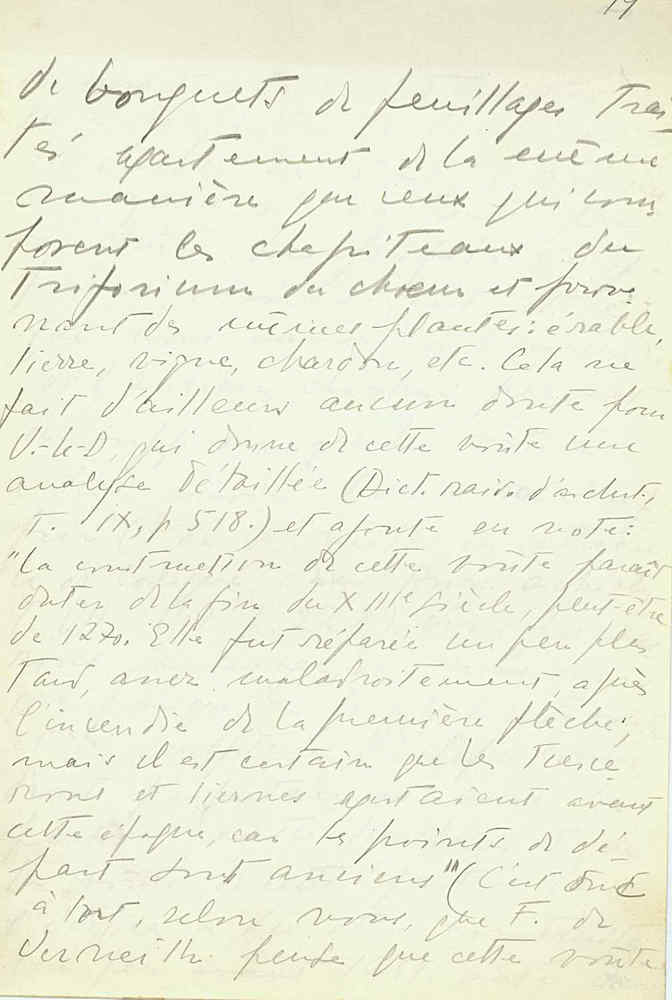 19
de bouquets de feuillages trai
tés exactement de la même
manière que ceux qui com
posent les chapiteaux du
Triforium du chœur et prove
nant des mêmes plantes: érable,
lierre, vigne, chardon, etc. Cela ne
fait d'ailleurs aucun doute pour
V.-le-D, qui donne de cette voûte une
analyse détaillée (Dict. rais. d'archit.,
T. IX, p 518.) et ajoute en note:
"La construction de cette voûte paraît
dater de la fin du XIIIe siècle, peut-être
de 1270. Elle fut réparée un peu plus
tard, assez maladroitement, après
l'incendie de la première flèche;
mais il est certain que les tierce
rons et liernes existaient avant
cette époque, car les points de dé
part sont anciens" (C'est donc
à tort, selon nous, que F. de
Verneilh pense que cette voûte